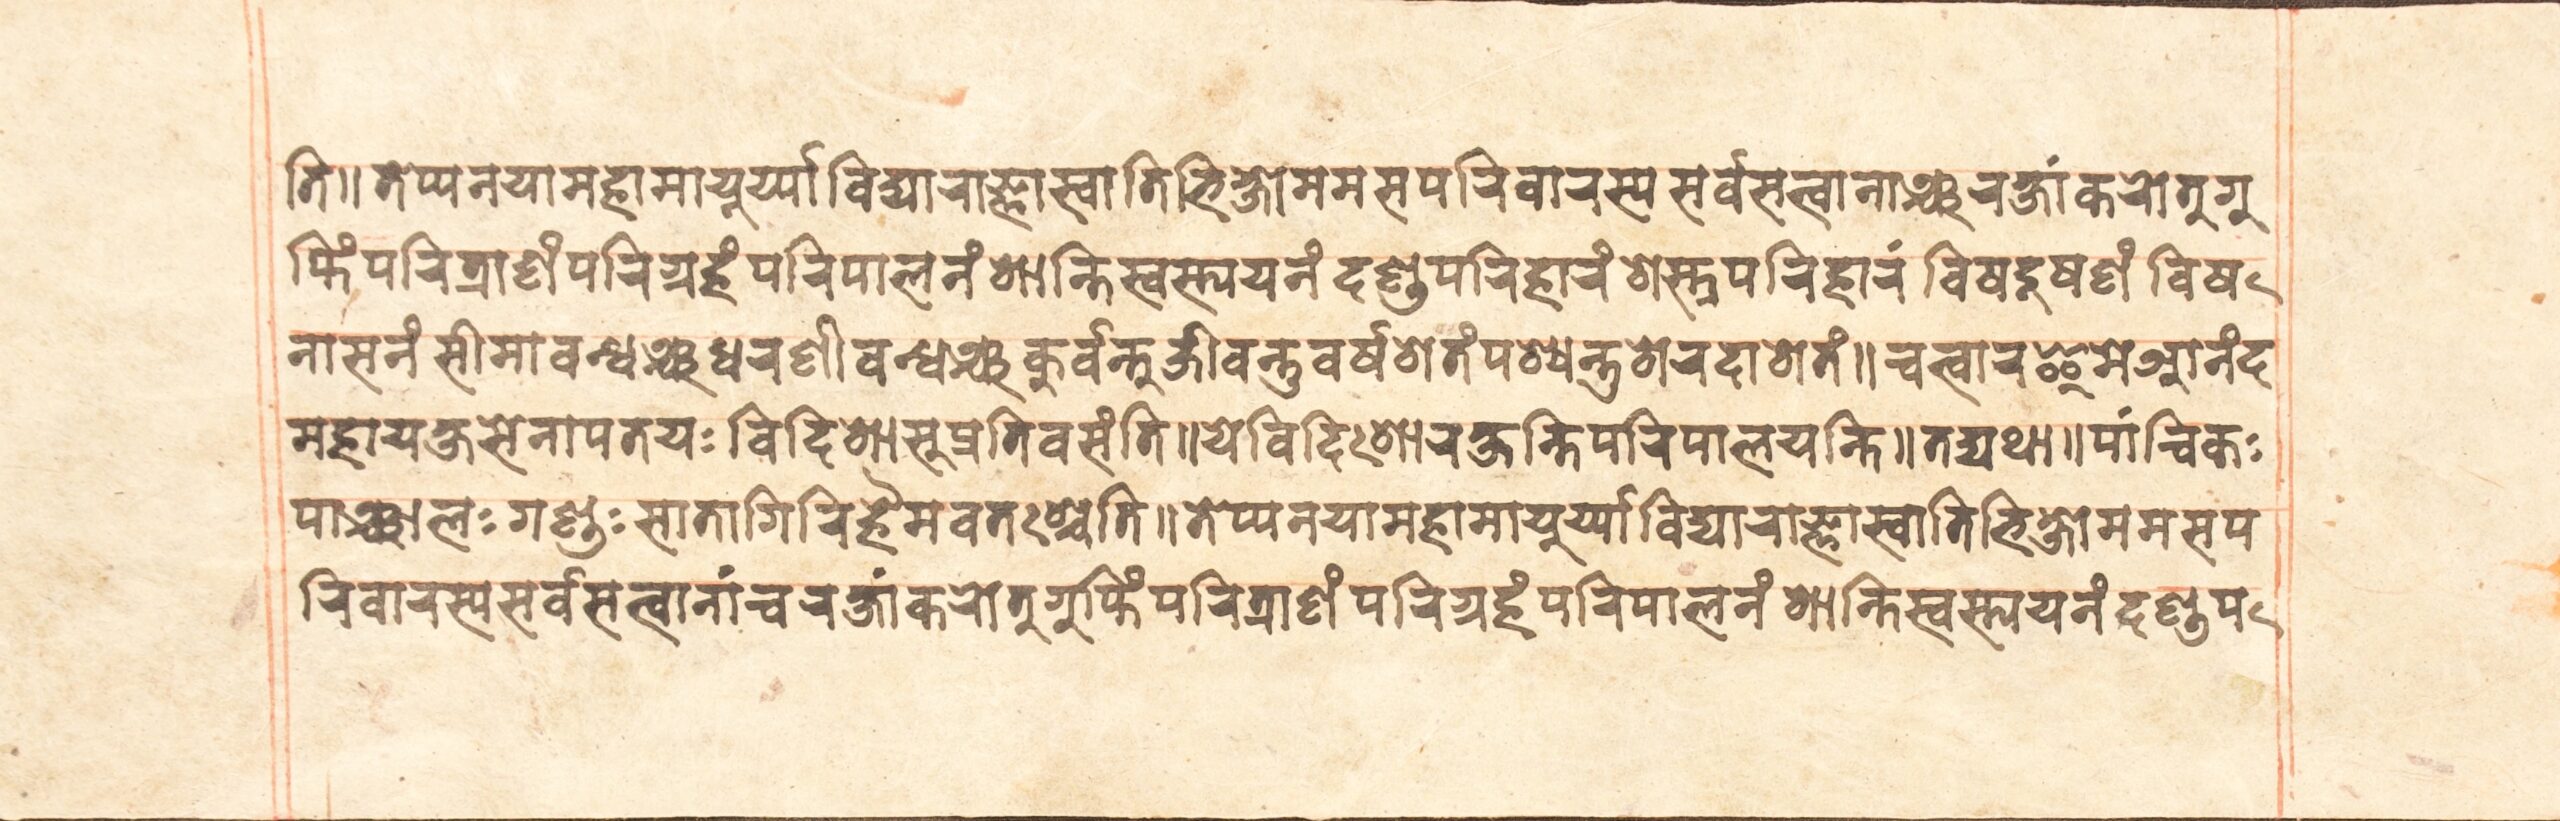 ति॥तेप्यनयामहामायूर्य्याविद्याराज्ञास्वातिभिक्षोममसपरिवारस्यसर्वसत्वानाञ्चरक्षांकरोतुगु
प्तिंपरित्राणंपरिग्रहंपरिपालनंशान्तिस्वस्त्ययनंदण्डपरिहारंशस्त्रपरिहारंविषदूषणंविष
नासनंसीमावन्धञ्चधरणीवन्धञ्चकुर्वन्तुजीवन्तुवर्षशतंपश्यन्तुशरदाशतं॥चत्वारइमेआनंद
महायक्षसेनापतयःविदिशासुप्रतिवसंति॥येविदिशोरक्षन्तिपरिपालयन्ति॥तद्यथा॥पांचिकः
पाञ्चालःगण्डःसातागिरिहैमवतश्चेति॥तेप्यनयामहामायुर्य्याविद्याराज्ञास्वातिभिक्षोममसप
रिवारस्यसर्वसत्वानांचरक्षांकरोतुगुप्तिंपरित्राणंपरिग्रहंपरिपालनंशान्तिस्वस्त्ययनंदण्डप